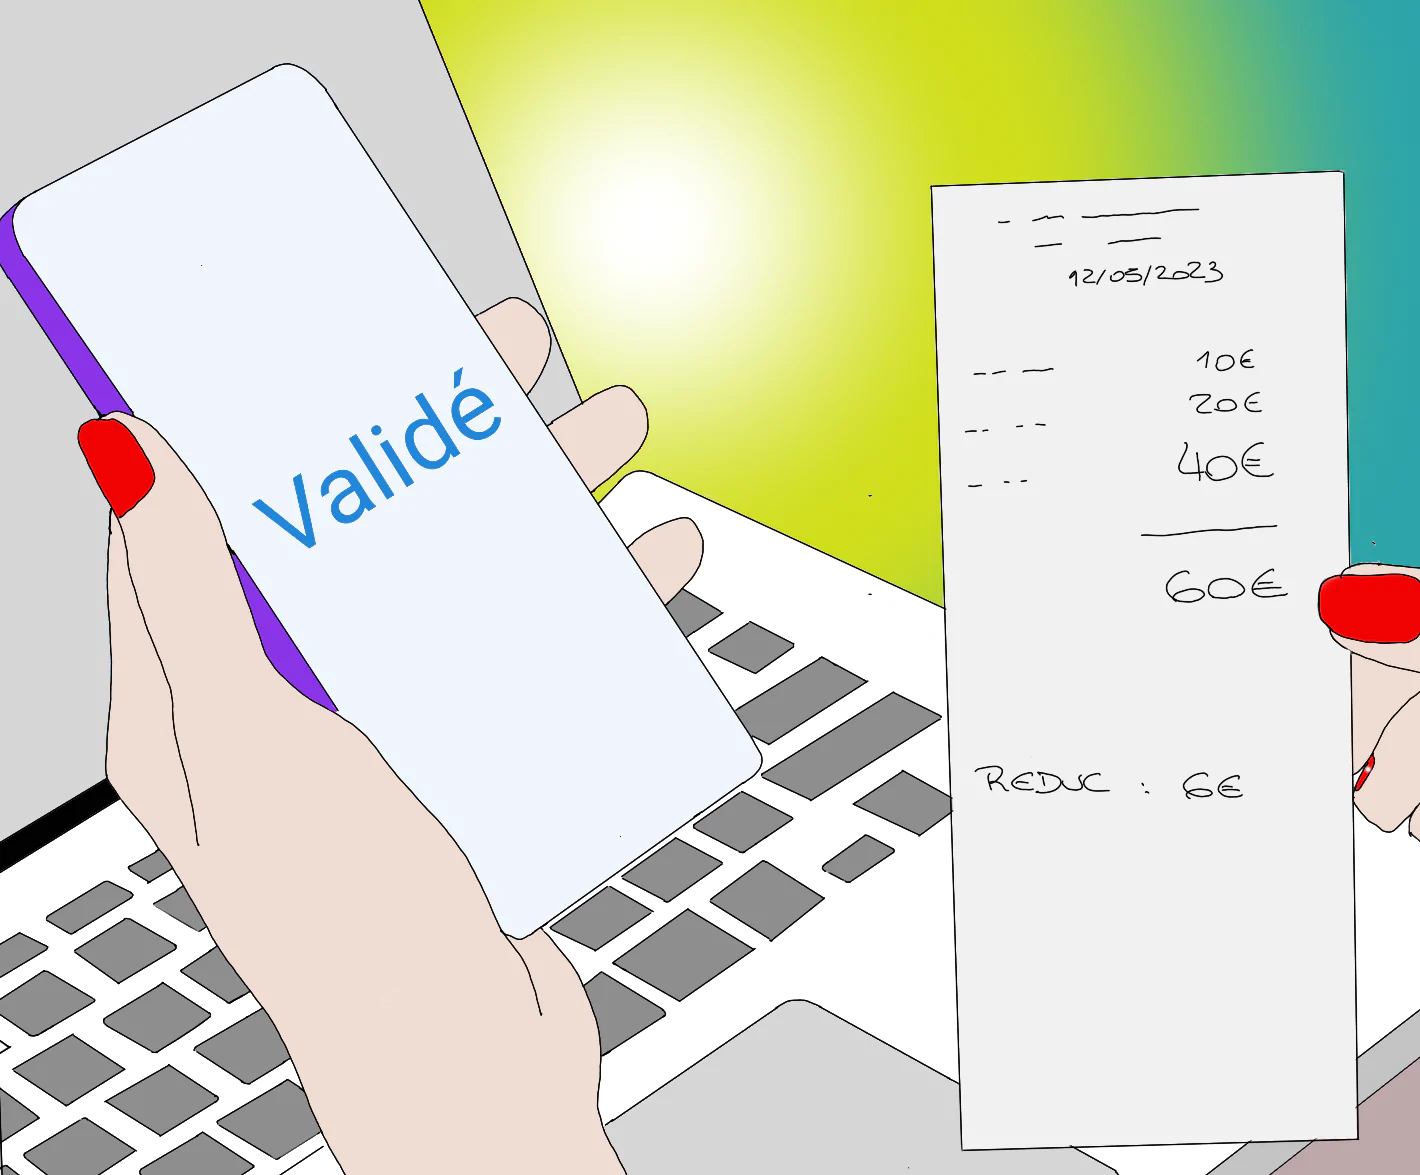 Validé
12/05/2023
10€
20€
40€
60€
REDUC : 6€